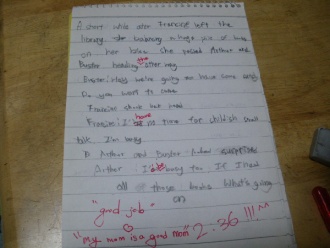 A short while after Francine left the
library balancing a huge pile of books
on her She passed Arthur and
Buster heading the other way
Buster: we're going to have some
Do you want to come
Francine her head
Francine: I have no time for childish
talk I'm busy
Arthur and Buster
Arthur I'd be busy too If I had
all those books What's going
on
"good job"
"My mom is a good mom" 2.36 !!!